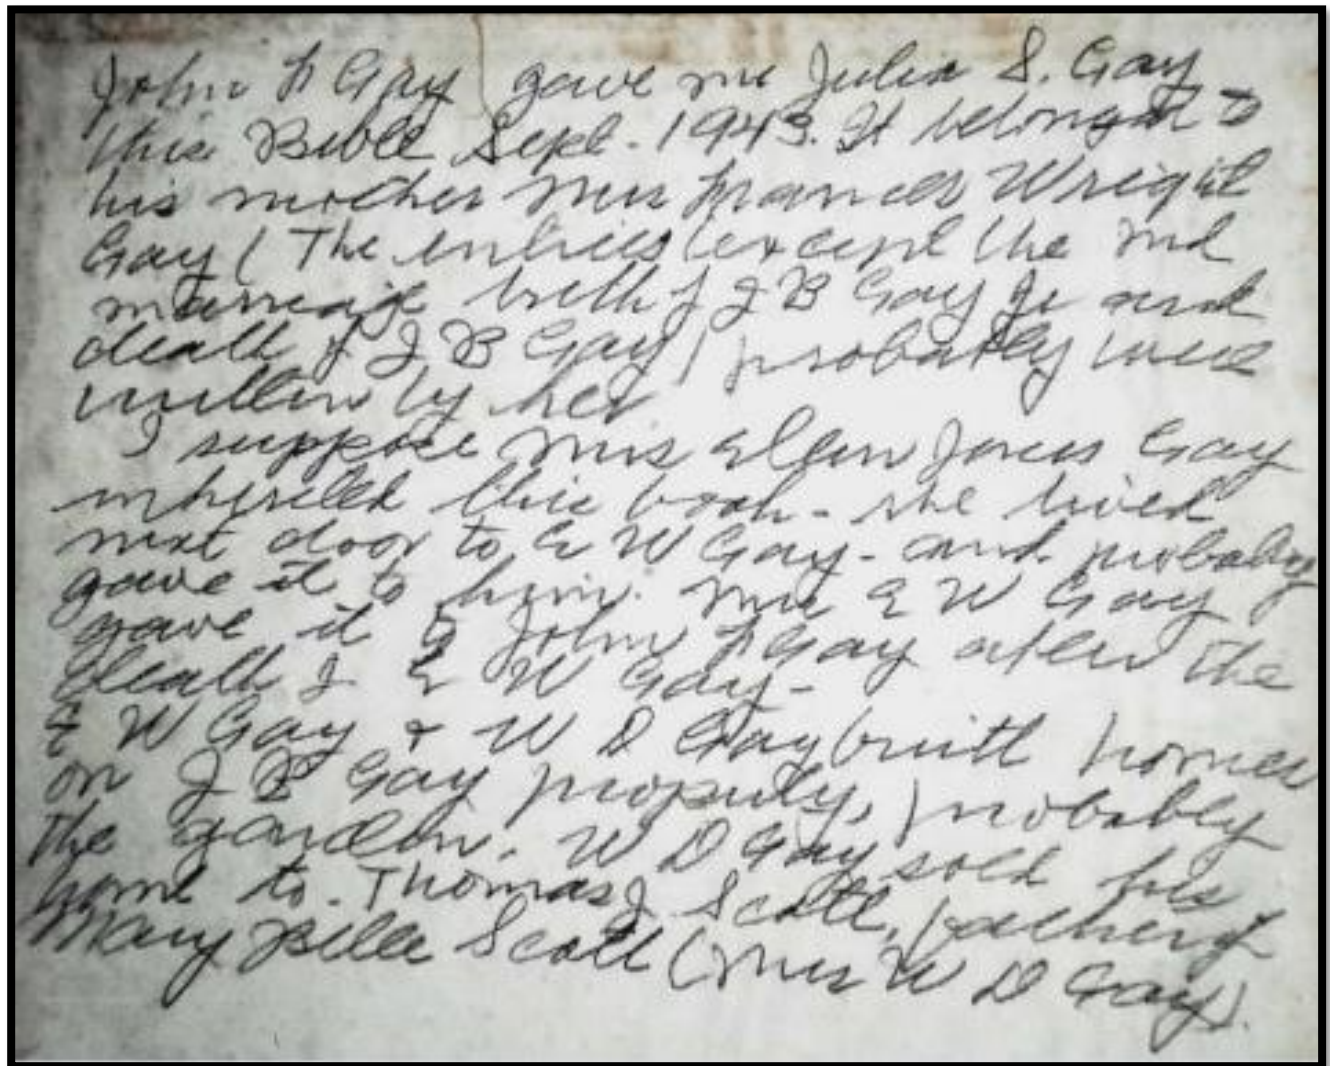 John F Gay gave me Julia S. Gay
this Bible Sept. 1943. It belonged to
his mother Mrs Frances Wright
Gay ( The entries (except the 2nd
marriage birth of J B Gay Jr and
death of J B Gay) probably were
written by her
I suppose Miss Ellen Jones Gay
inherited this book - she lived
next door to E W Gay - and probably
gave it to him. Mrs E W Gay
gave it to John F Gay after the
death of E W Gay -
E W Gay & W D Gay built homes
on J B Gay property, probably
the garden. W D Gay sold his
home to Thomas J Scott, father of
Mary Belle Scott (Mrs W D Gay).